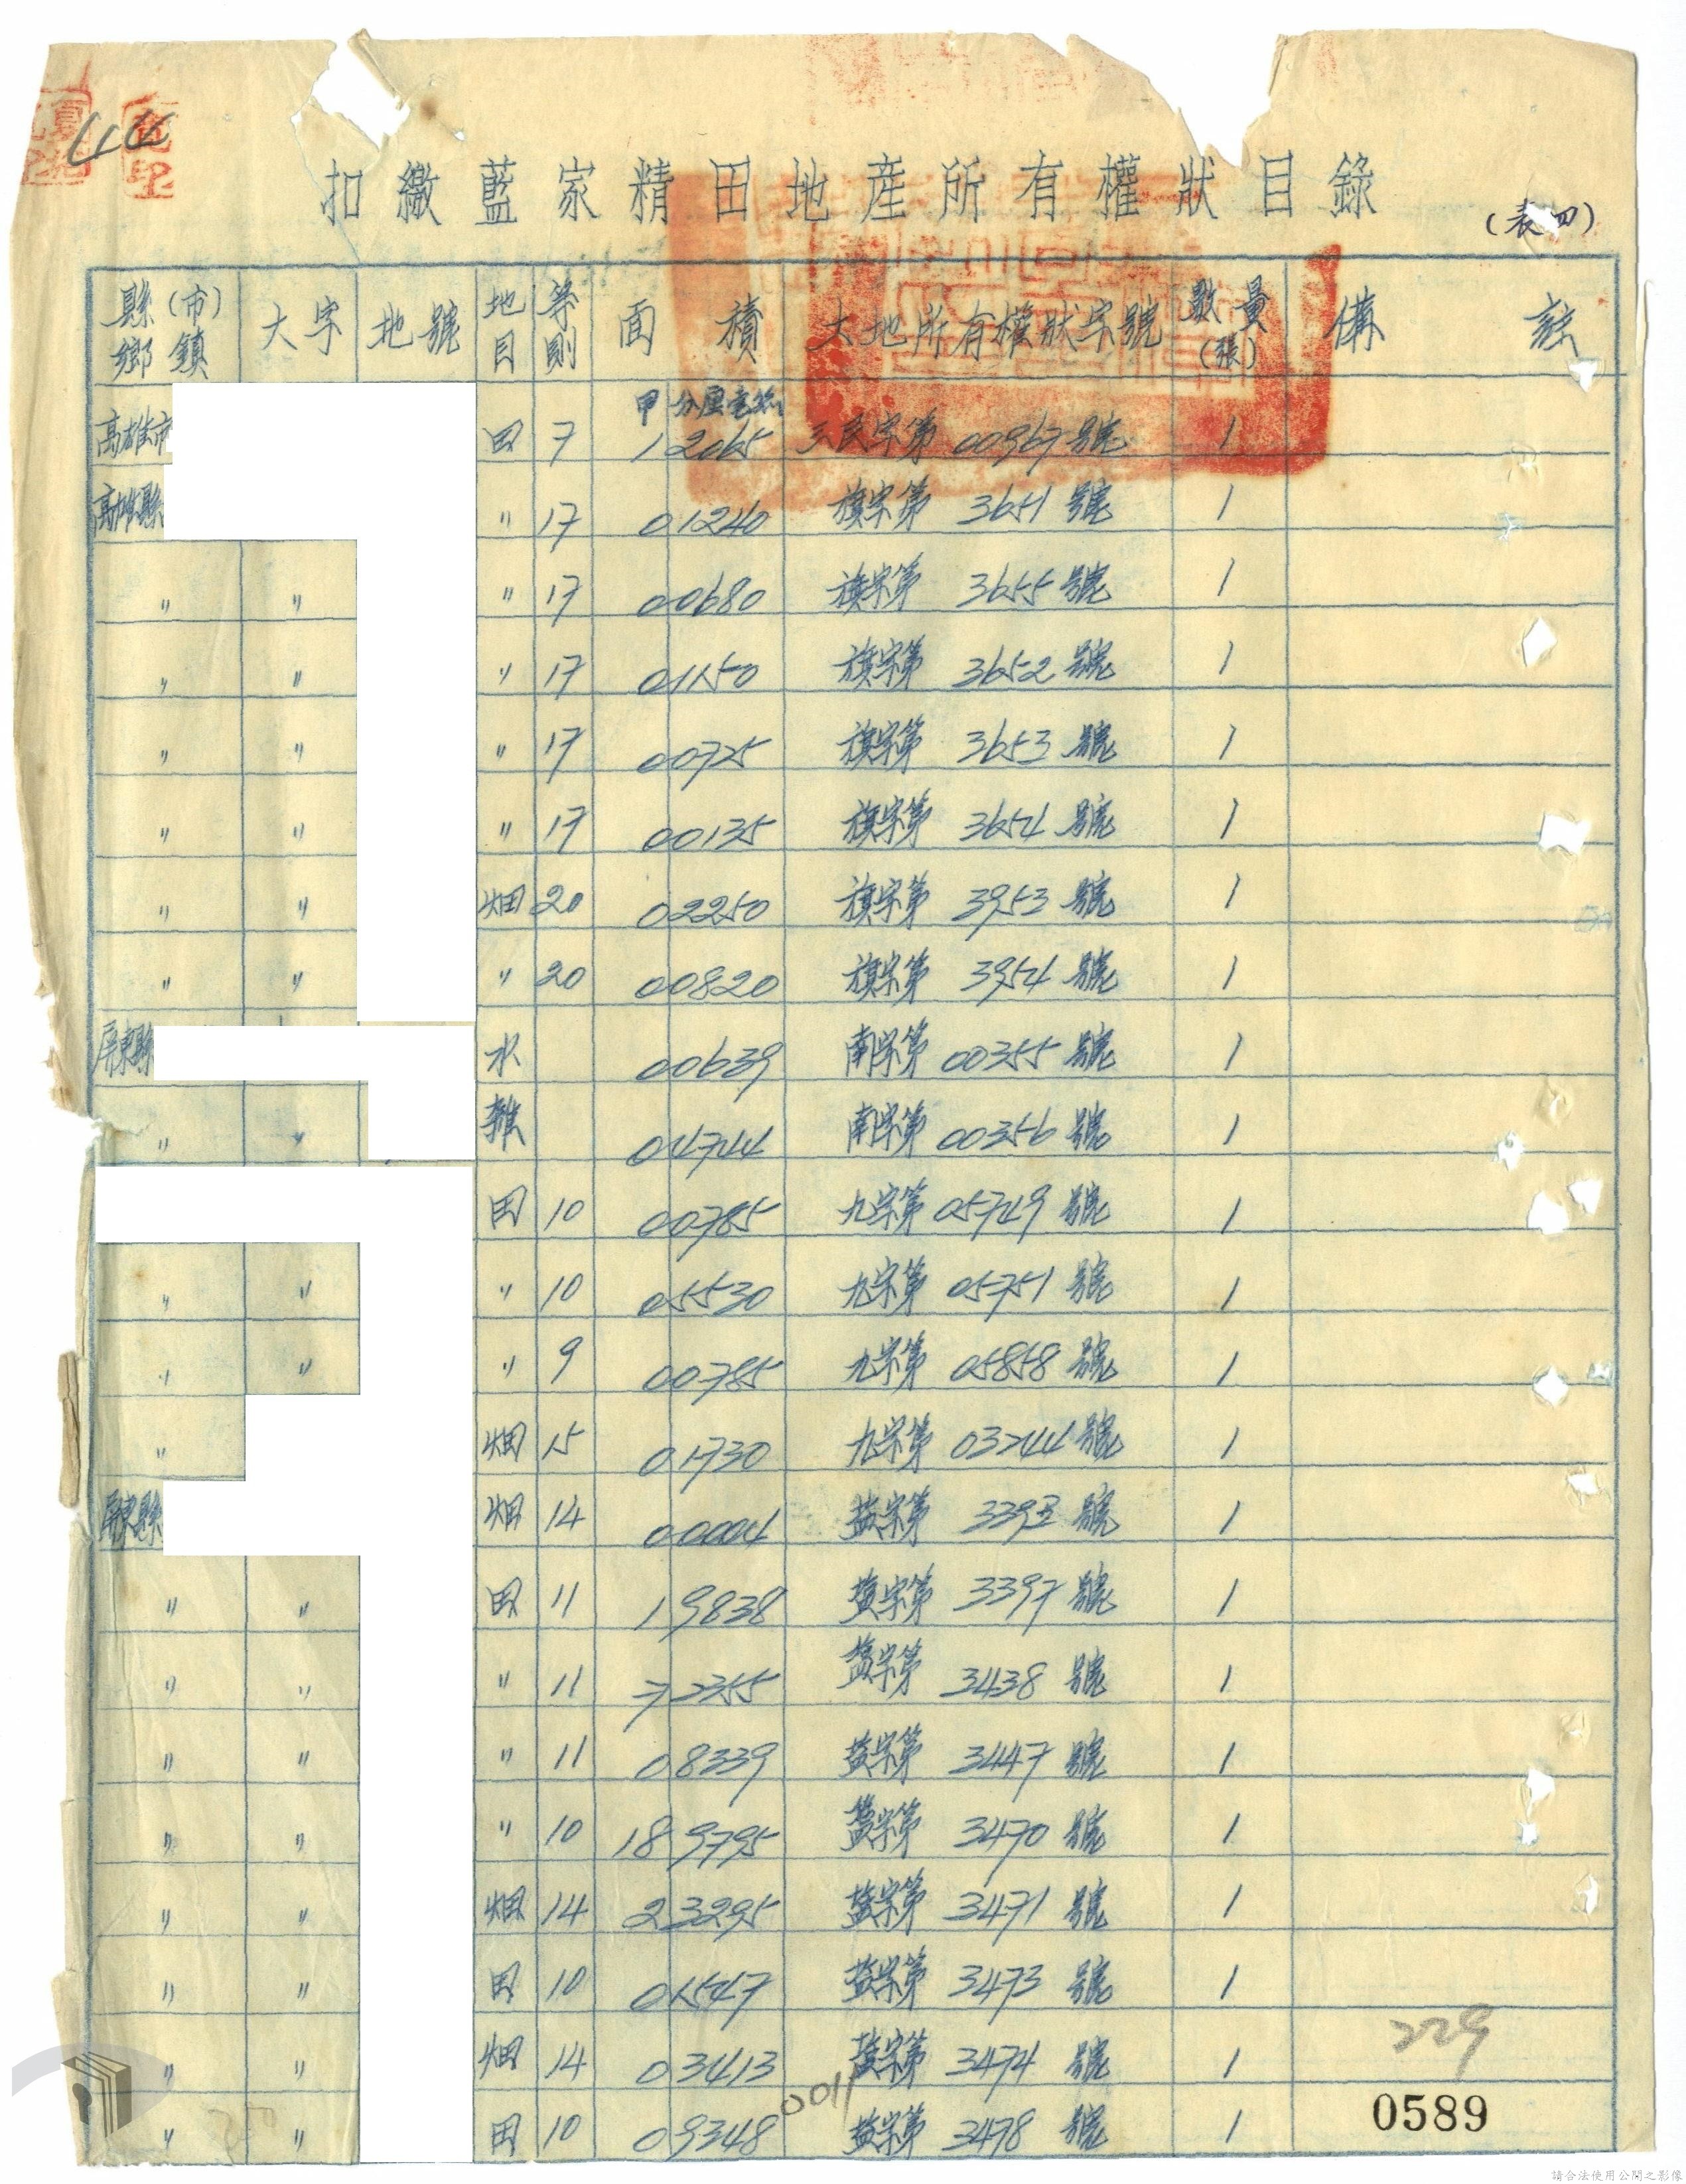 扣繳藍家精田地産所有權狀目錄
(表四)
縣(市)鄉鎮 大字 地號 地目 等則 面積 土地所有權狀字號 數量(張) 備註
甲 分厘毫絲
高雄市 田 7 1 2065 三民字第 00967 號 1
高雄縣 〃 17 0 1240 旗字第 3651 號 1
〃 〃 〃 17 0 0680 旗字第 3655 號 1
〃 〃 〃 17 0 1150 旗字第 3652 號 1
〃 〃 〃 17 0 0725 旗字第 3653 號 1
〃 〃 〃 17 0 0135 旗字第 3654 號 1
〃 〃 畑 20 0 2250 旗字第 3953 號 1
〃 〃 〃 20 0 0820 旗字第 3954 號 1
屏東縣 水 0 0639 南字第 00355 號 1
〃 〃 雜 0 4744 南字第 00356 號 1
田 10 0 0785 九字第 05749 號 1
〃 〃 〃 10 0 5530 九字第 05751 號 1
〃 〃 〃 9 0 0785 九字第 05858 號 1
〃 畑 15 0 1730 九字第 03744 號 1
屏東縣 畑 14 0 0004 鹽字第 號 1
〃 〃 田 11 1 9838 鹽字第 3397 號 1
〃 〃 〃 11 7 2355 鹽字第 3438 號 1
〃 〃 〃 11 0 8339 鹽字第 3447 號 1
〃 〃 〃 10 18 9795 鹽字第 3470 號 1
〃 〃 畑 14 2 3295 鹽字第 3471 號 1
〃 〃 田 10 0 1547 鹽字第 3473 號 1
〃 〃 畑 14 0 3413 鹽字第 3474 號 1
〃 〃 田 10 0 9348 鹽字第 3478 號 1
0011
229
0589
請合法使用公開之影像